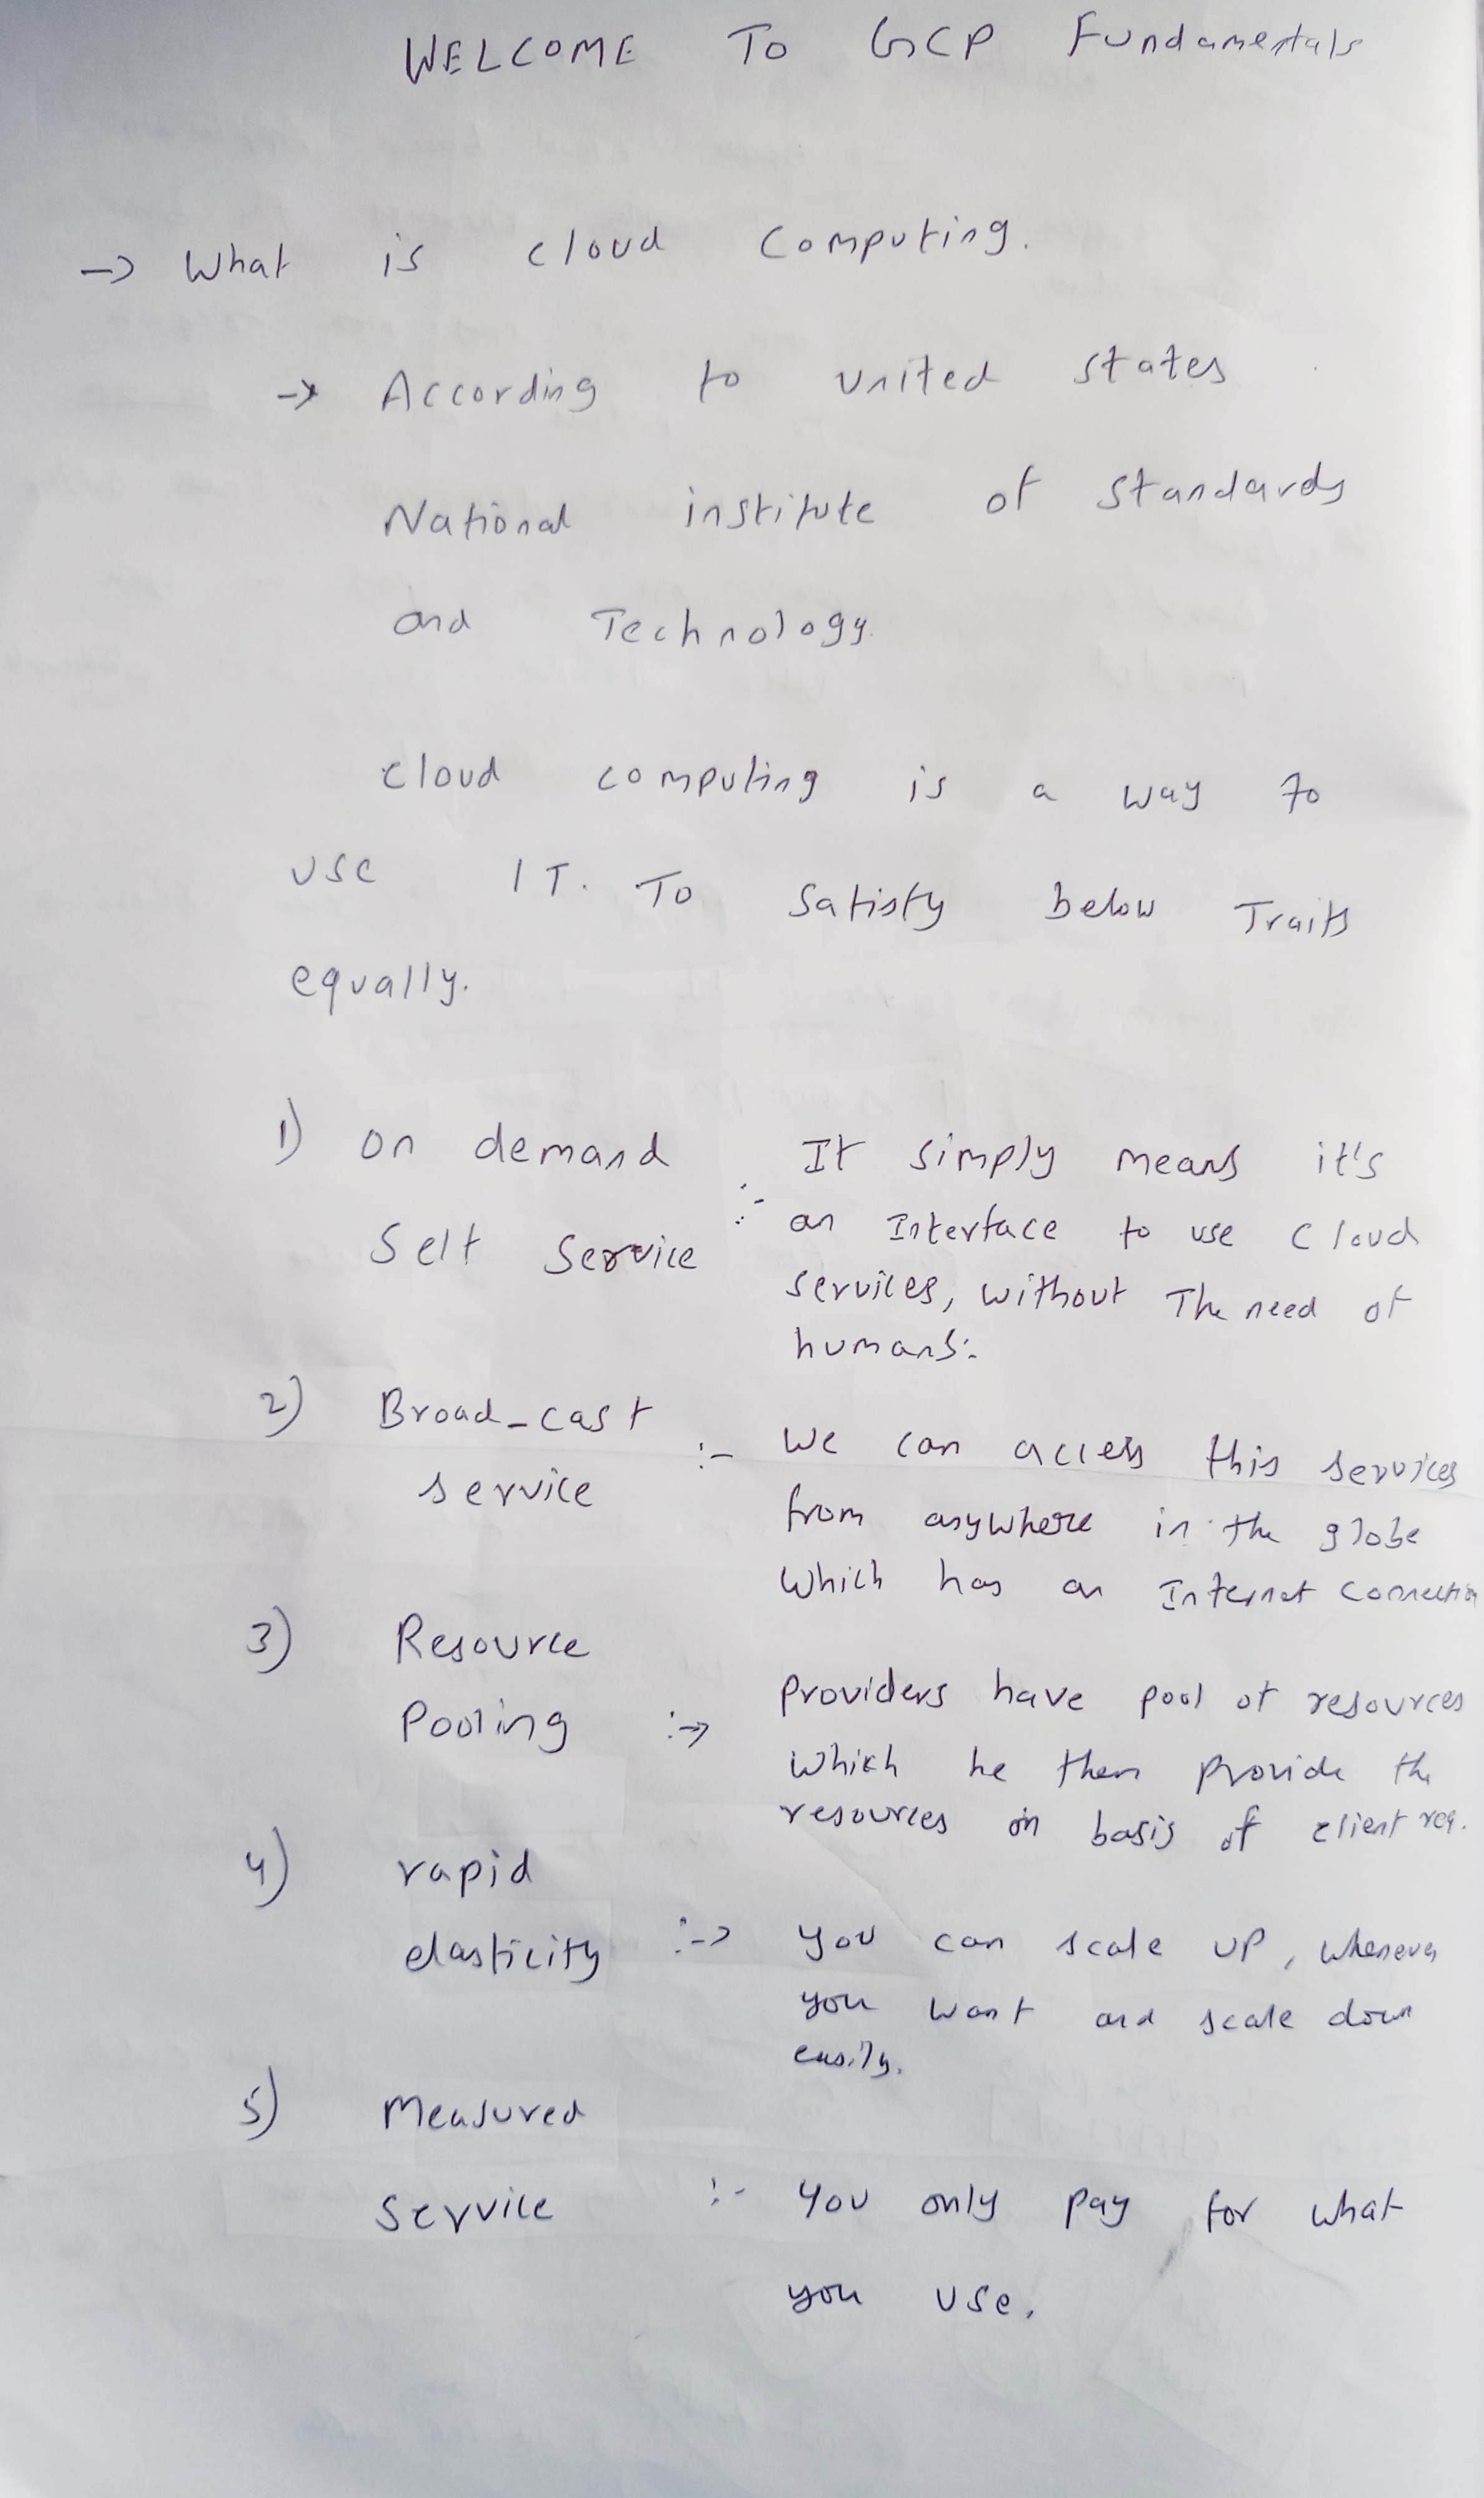 WELCOME To GCP Fundamentals
-> What is cloud Computing.
-> According to united states
National institute of standards
and Technology.
cloud computing is a way to
use IT. To satisfy below Traits
equally.
1) on demand
Self Service :- It simply means it's
an Interface to use cloud
services, without The need of
humans.
2) Broad-cast
service :- we can access this services
from anywhere in the globe
which has an Internet connection
3) Resource
Pooling :-> Providers have pool of resources
which he then provide the
resources on basis of client req.
4) rapid
elasticity :-> you can scale up, whenever
you want and scale down
easily.
5) Measured
service :- you only pay for what
you use.